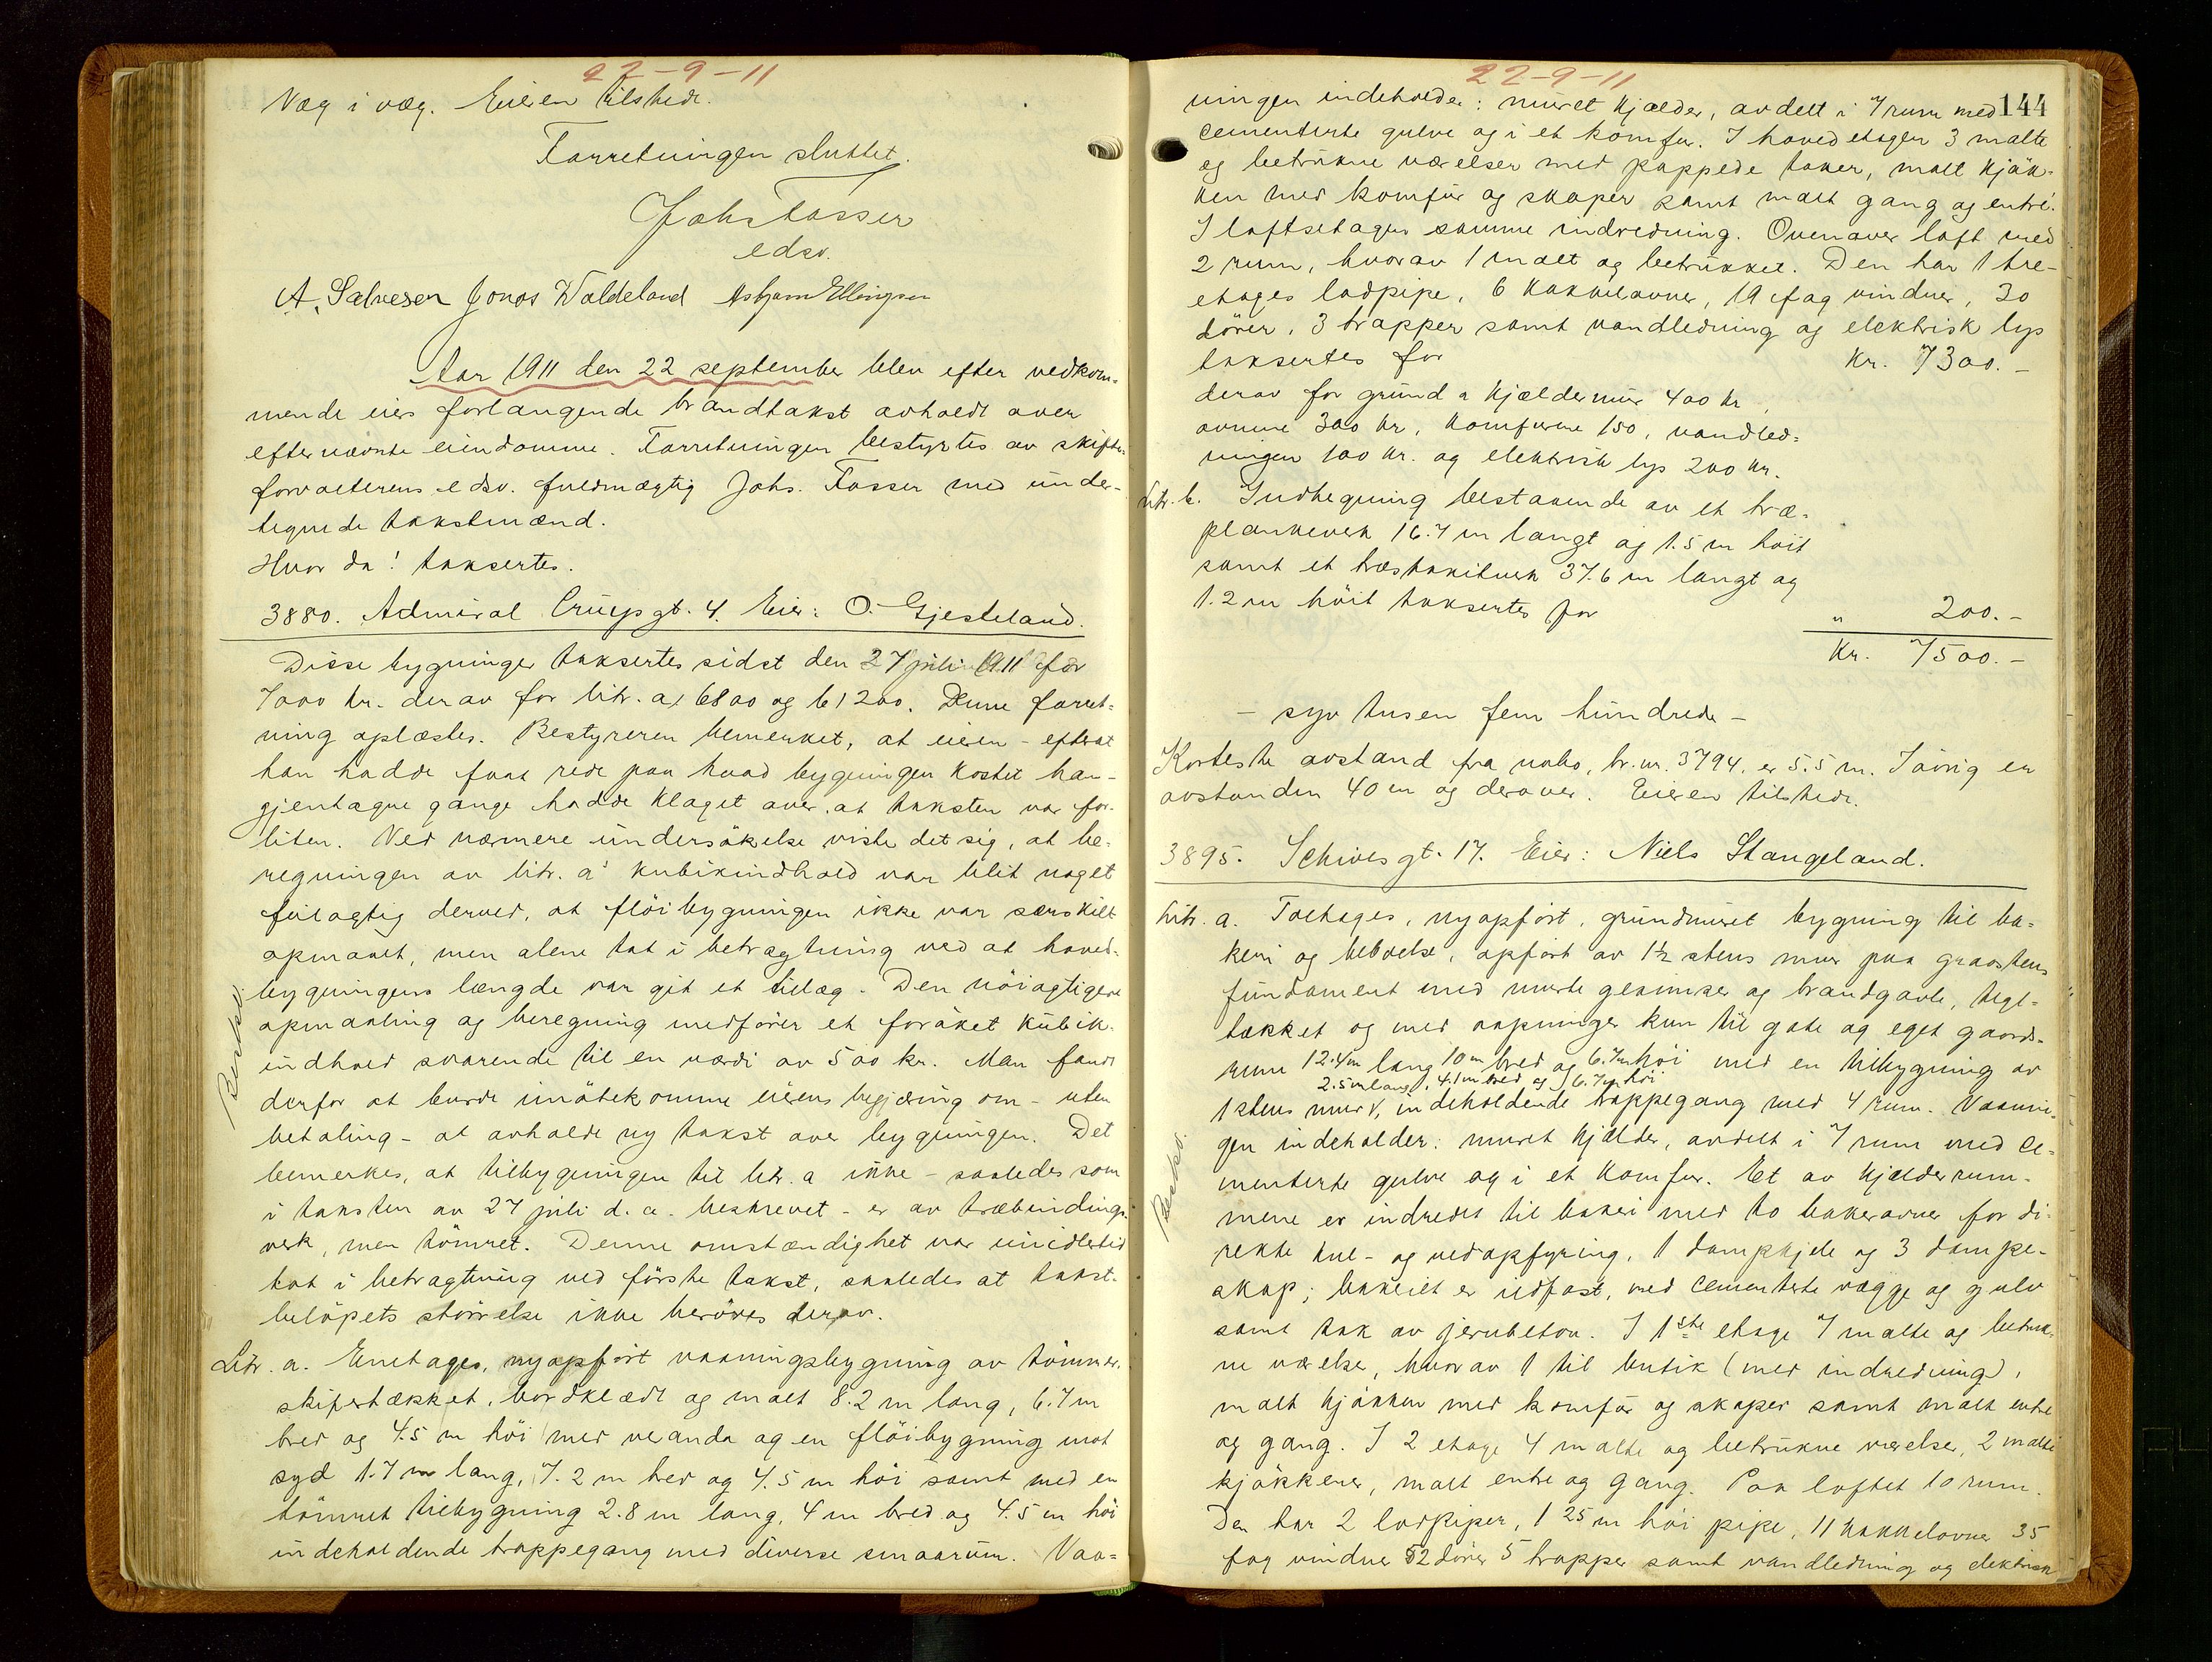 22-9-11
Væg i væg. Eieren tilstede.
Forretningen sluttet.
Johs Tasser
edsv.
A. Salvesen Jonas Waldeland Asbjørn Ellingsen
Aar 1911 den 22 september blev efter vedkom-
mende eiers forlangende brandtakst avholdt over
efternævnte eiendomme. Forretningen bestyrtes av skifte-
forvalterens edsv. fuldmægtig Johs. Tasser med under-
tegnede takstmænd.
Hvor da! taksertes.
3880. Admiral Cruysgt. 4. Eier: O. Gjesteland.
Disse bygninger taksertes sidst den 27 juli 1911 for
7000 kr. derav for litr. a) 6800 og b) 200. Denne forret-
ning oplæstes. Bestyreren bemerket, at eieren - efterat
han hadde faat rede paa hvad bygningen kostet ham -
gjentagne gange hadde klaget over at taksten var for
liten. Ved nærmere undersøkelse viste det sig, at be-
regningen av litr. a's kubikindhold var blit noget
feilagtig derved, at fløibygningen ikke var særskilt
opmaalt, men alene tat i betragtning ved at hoved-
bygningens længde var git et tillæg. Den nøiagtigere
opmaaling og beregning medfører et forøket kubik-
indhold svarende til en værdi av 500 kr. Man fandt
derfor at burde imøtekomme eierens begjæring om - uten
betaling - at avholde ny takst over bygningen. Det
bemerkes, at tilbygningen til litr. a ikke - saaledes som
i taksten av 27 juli d. a. beskrevet - er av træbindings-
verk, men tømret. Denne omstændighet var imidlertid
tat i betragtning ved første takst, saaledes at takst-
beløpets størrelse ikke berøres derav.
Litr. a. Enetages, nyopført vaaningsbygning av tømmer,
skifertækket, bordklædt og malt 8.2 m lang, 6.7 m
bred og 4.5 m høi med veranda og en fløibygning mot
syd 1.7 m lang, 7.2 m bred og 4.5 m høi samt med en
tømret tilbygning 2.8 m lang, 4 m bred og 4.5 m høi
indeholdende trappegang med diverse smaarum. Vaa-
22-9-11
144
ningen indeholder: muret kjælder, avdelt i 7 rum med
cementerte gulve og i et komfur. I hovedetagen 3 malte
og betrukne værelser med pappede taker, malt kjøk-
ken med komfur og skaper samt malt gang og entré.
I loftsetagen samme indredning. Ovenover loft med
2 rum, hvorav 1 malt og betrukket. Den har 1 tre-
etages lodpipe, 6 kakkelovner, 19 fag vinduer, 30
dører, 3 trapper samt vandledning og elektrisk lys
taksertes for Kr. 7300.-
derav for grund & kjældermur 400 kr.,
ovnene 300 kr, komfurene 150, vandled-
ningen 100 kr. og elektrisk lys 200 kr.
Litr. b. Indhegning bestaaende av et træ-
plankeverk 16.7 m langt og 1.5 m høit
samt et træstakitverk 37.6 m langt og
1.2 m høit taksertes for " 200.-
Kr. 7500.-
- syv tusen fem hundrede -
Korteste avstand fra nabo, br.nr. 3794, er 5.5 m. Iøvrig er
avstanden 40 m og derover. Eieren tilstede.
3895. Schivesgt. 17. Eier: Niels Stangeland.
Litr. a. Toetages, nyopført, grundmuret bygning til ba-
keri og beboelse, opført av 1½ stens mur paa graastens
fundament med murte gesimser og brandgavle, tegl-
tækket og med aapninger kun til gate og eget gaards-
rum 12.4 m lang 10 m bred og 6.7 m høi med en tilbygning av
2.5 m lang, 4.1 m bred og 6.7 m høi
1 stens mur, indeholdende trappegang med 4 rum. Vaanin-
gen indeholder: muret kjælder, avdelt i 7 rum med ce-
menterte gulve og i et komfur. Et av kjælderrum-
mene er indredet til bakeri med to bakerovner for di-
rekte kul- og vedopfyring, 1 dampkjele og 3 dampe-
skap; bakeriet er ildfast, med cementerte vægge og gulv
samt tak av jernbeton. I 1ste etage 7 malte og betruk-
ne værelse, hvorav 1 til butik (med indredning),
malt kjøkken med komfur og skaper samt malt entre
og gang. I 2 etage 4 malte og betrukne værelser, 2 malte
kjøkkener, malt entre og gang. Paa loftet 10 rum.
Den har 2 lodpiper, 1 25 m høi pipe, 11 kakkelovner 35
fag vinduer 52 dører 5 trapper samt vandledning og elektrisk